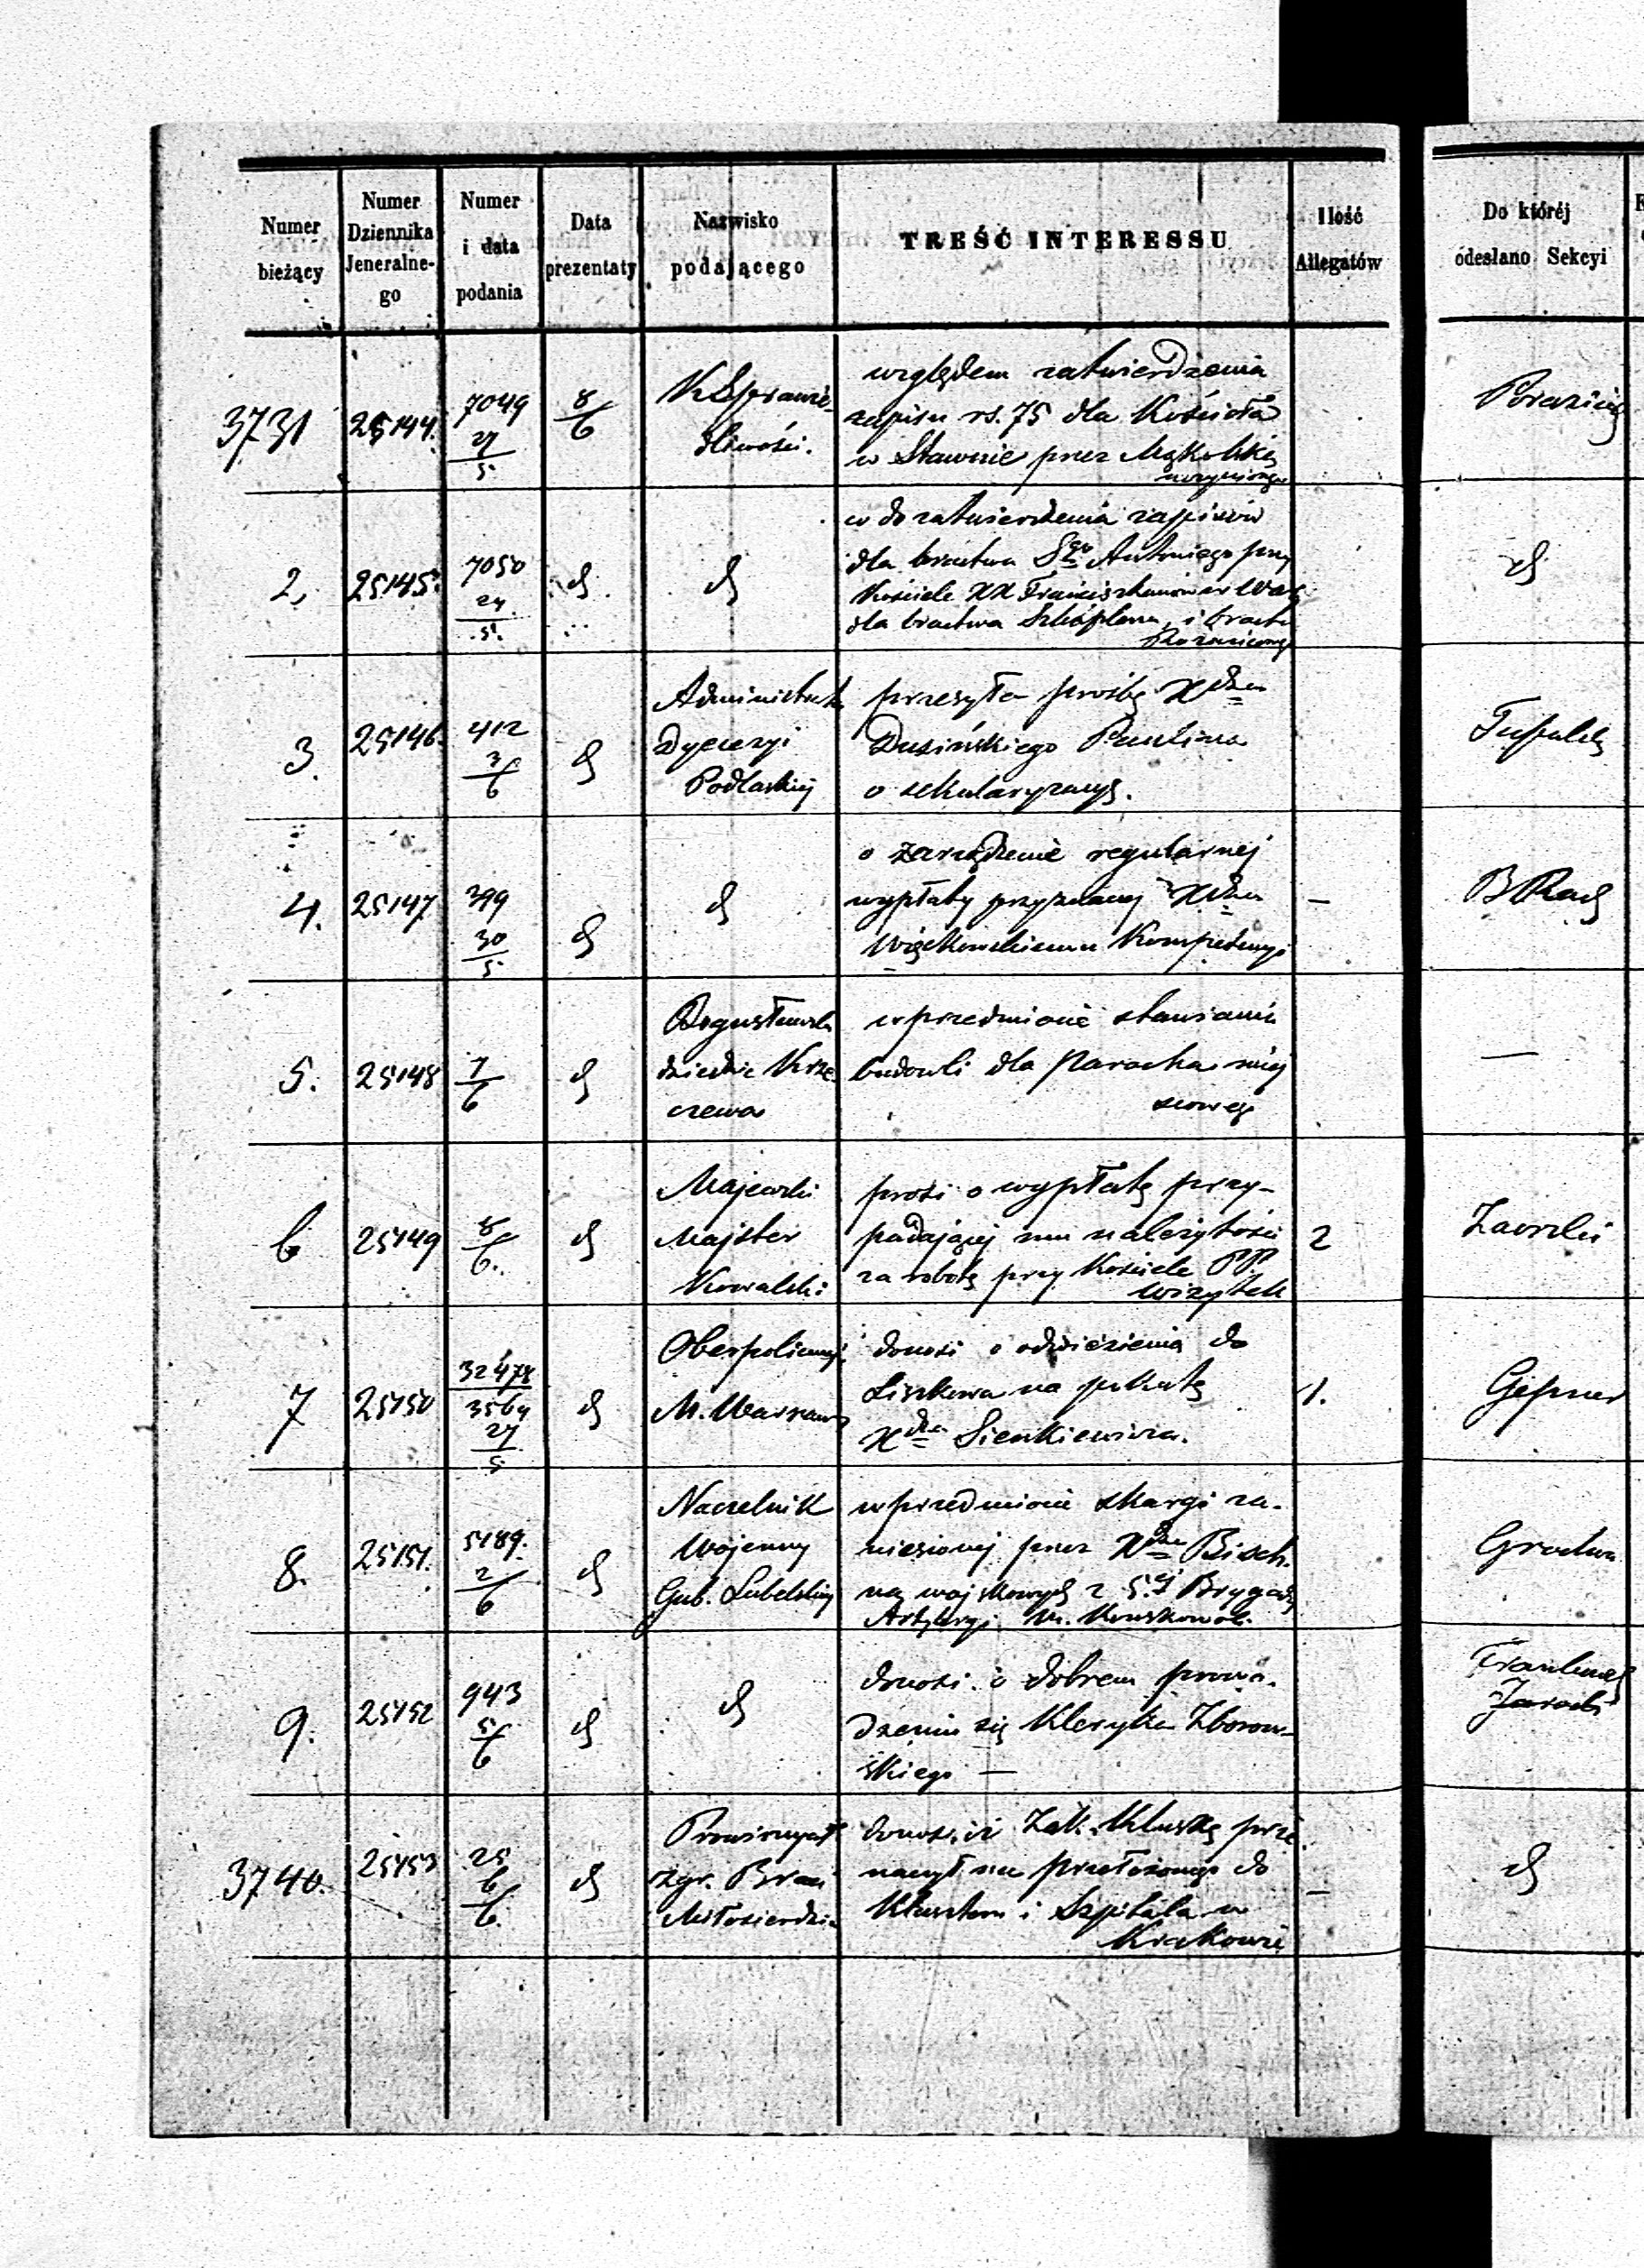 Numer bieżący
Numer Dziennika Jeneralne-go
Numer i data podania
Data prezentaty
Nazwisko podającego
TREŚĆ INTERESSU
Ilość Allegatów
Do któréj odesłano Sekcyi
3731 25144. 7049 27/5 8/6
K. Sprawie-
dliwości.
względem zatwierdzenia
zapisu rs. 75 dla Kościoła
w Sławnie przez
2, 25145. 7050 24/5. d d
w do zatwierdzenia zapisów
dla bractwa Sgo Antoniego przy
Kościele XX Franciszkanów w War.
dla bractwa Szkaplerz. i bractw
Różańcowego
d
3. 25146. 412 3/6 d
Administrator
Dyecezyi
Podlaskiej
przesyła prośbę Xdza
Dusińskiego Paulina
o sekularyzacyę.
4. 25147 399 30/5 d d
o zarządzenie regularnej
wypłaty przyznanej Xdzu
Więckowskiemu Kompetencyi
—
5. 25148 7/6 d
dziedzic Krze-
czewa
w przedmiocie stawiania
budowli dla Parocha miej
scowego
—
6 25149 8/6. d
Majewski
Majster
Kowalski
prosi o wypłatę przy-
padającej mu należytości
za robotę przy Kościele PP.
Wizytek
2
7 25150 32478 3564 27/5 d
Oberpolicmaj.
M. Warszawy
donosi o odwiezieniu do
Liszkowa na pokutę
Xdza Sienkiewicza.
1.
Gepner
8. 25151. 5189. 2/6 d
Naczelnik
Wojenny
Gub. Lubelskiej
w przedmiocie skargi za-
niesionej przez Xdza Bisch.
na wojskowych z 5ej Brygady
Artyleryi
9. 25152 943 5/6 d d
donosi o dobrem prowa-
dzeniu się Kleryka Zborow-
skiego —
3740. 25153 25 6/6. d
Prowincyał
zgr. Braci
Miłosierdzia
donosi iż Zak. Kluskę prze
naczył na przełożonego do
Klasztoru i Szpitala w
Krakowie
—
d